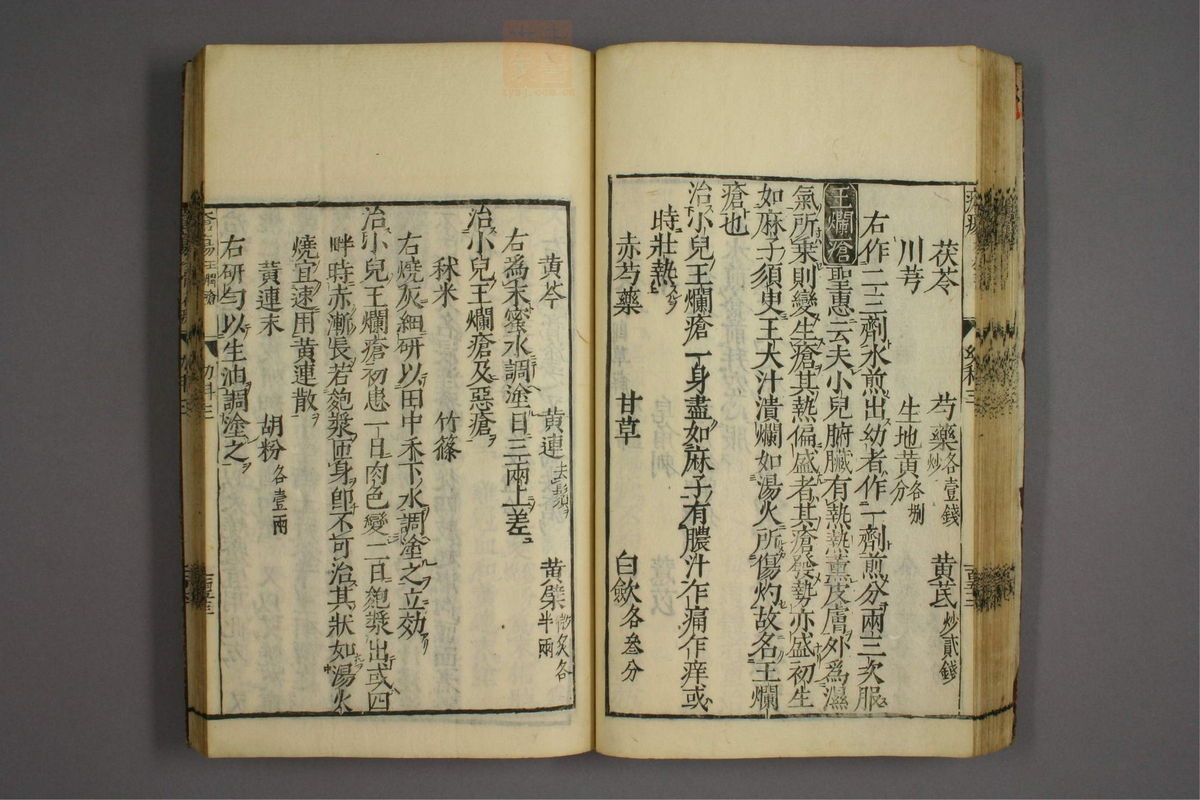 茯苓 芍藥各壹錢炒 黄芪炒貳錢
川芎 生地黄各捌分
右作二三劑水煎出幼者作一劑煎分兩三次服
王爛瘡 聖惠云夫小兒腑臟有熱熱薰皮膚外爲濕
氣所乗則變生瘡其熱偏盛者其瘡發勢亦盛初生
如麻子須史王大汁潰爛如湯火所傷灼故名王爛
瘡也
治小兒王爛瘡一身盡如麻子有膿汁乍痛乍痒或
時壯熱
赤芍藥 甘草 白歛各叄分
黄芩 黄連去鬚 黄檗微炙各半兩
右為末蜜水調塗日三兩上差
治小兒王爛瘡及惡瘡
秫米 竹篠
右燒灰細研以田中禾下水調塗之立効
治小兒王爛瘡初患一日肉色變二日皰漿出或四
畔時赤漸長若皰漿匝身即不可治其狀如湯火
燒宜速用黄連散
黄連末 胡粉各壹兩
右研勻以生油調塗之
幼科三